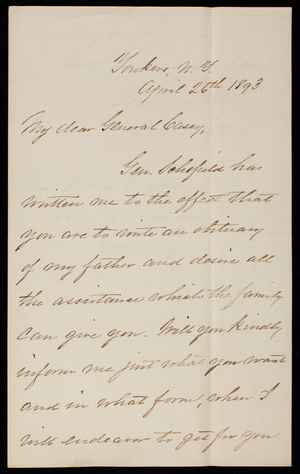 Yonkers, N. Y.
April 26th 1893.
My dear General Casey,
Gen. Schofield has
written me to the effect that
you are to write an obituary
of my father and desire all
the assistance which the family
can give you. Will you kindly
inform me just what you want
and in what form, when I
will endeavor to get for you